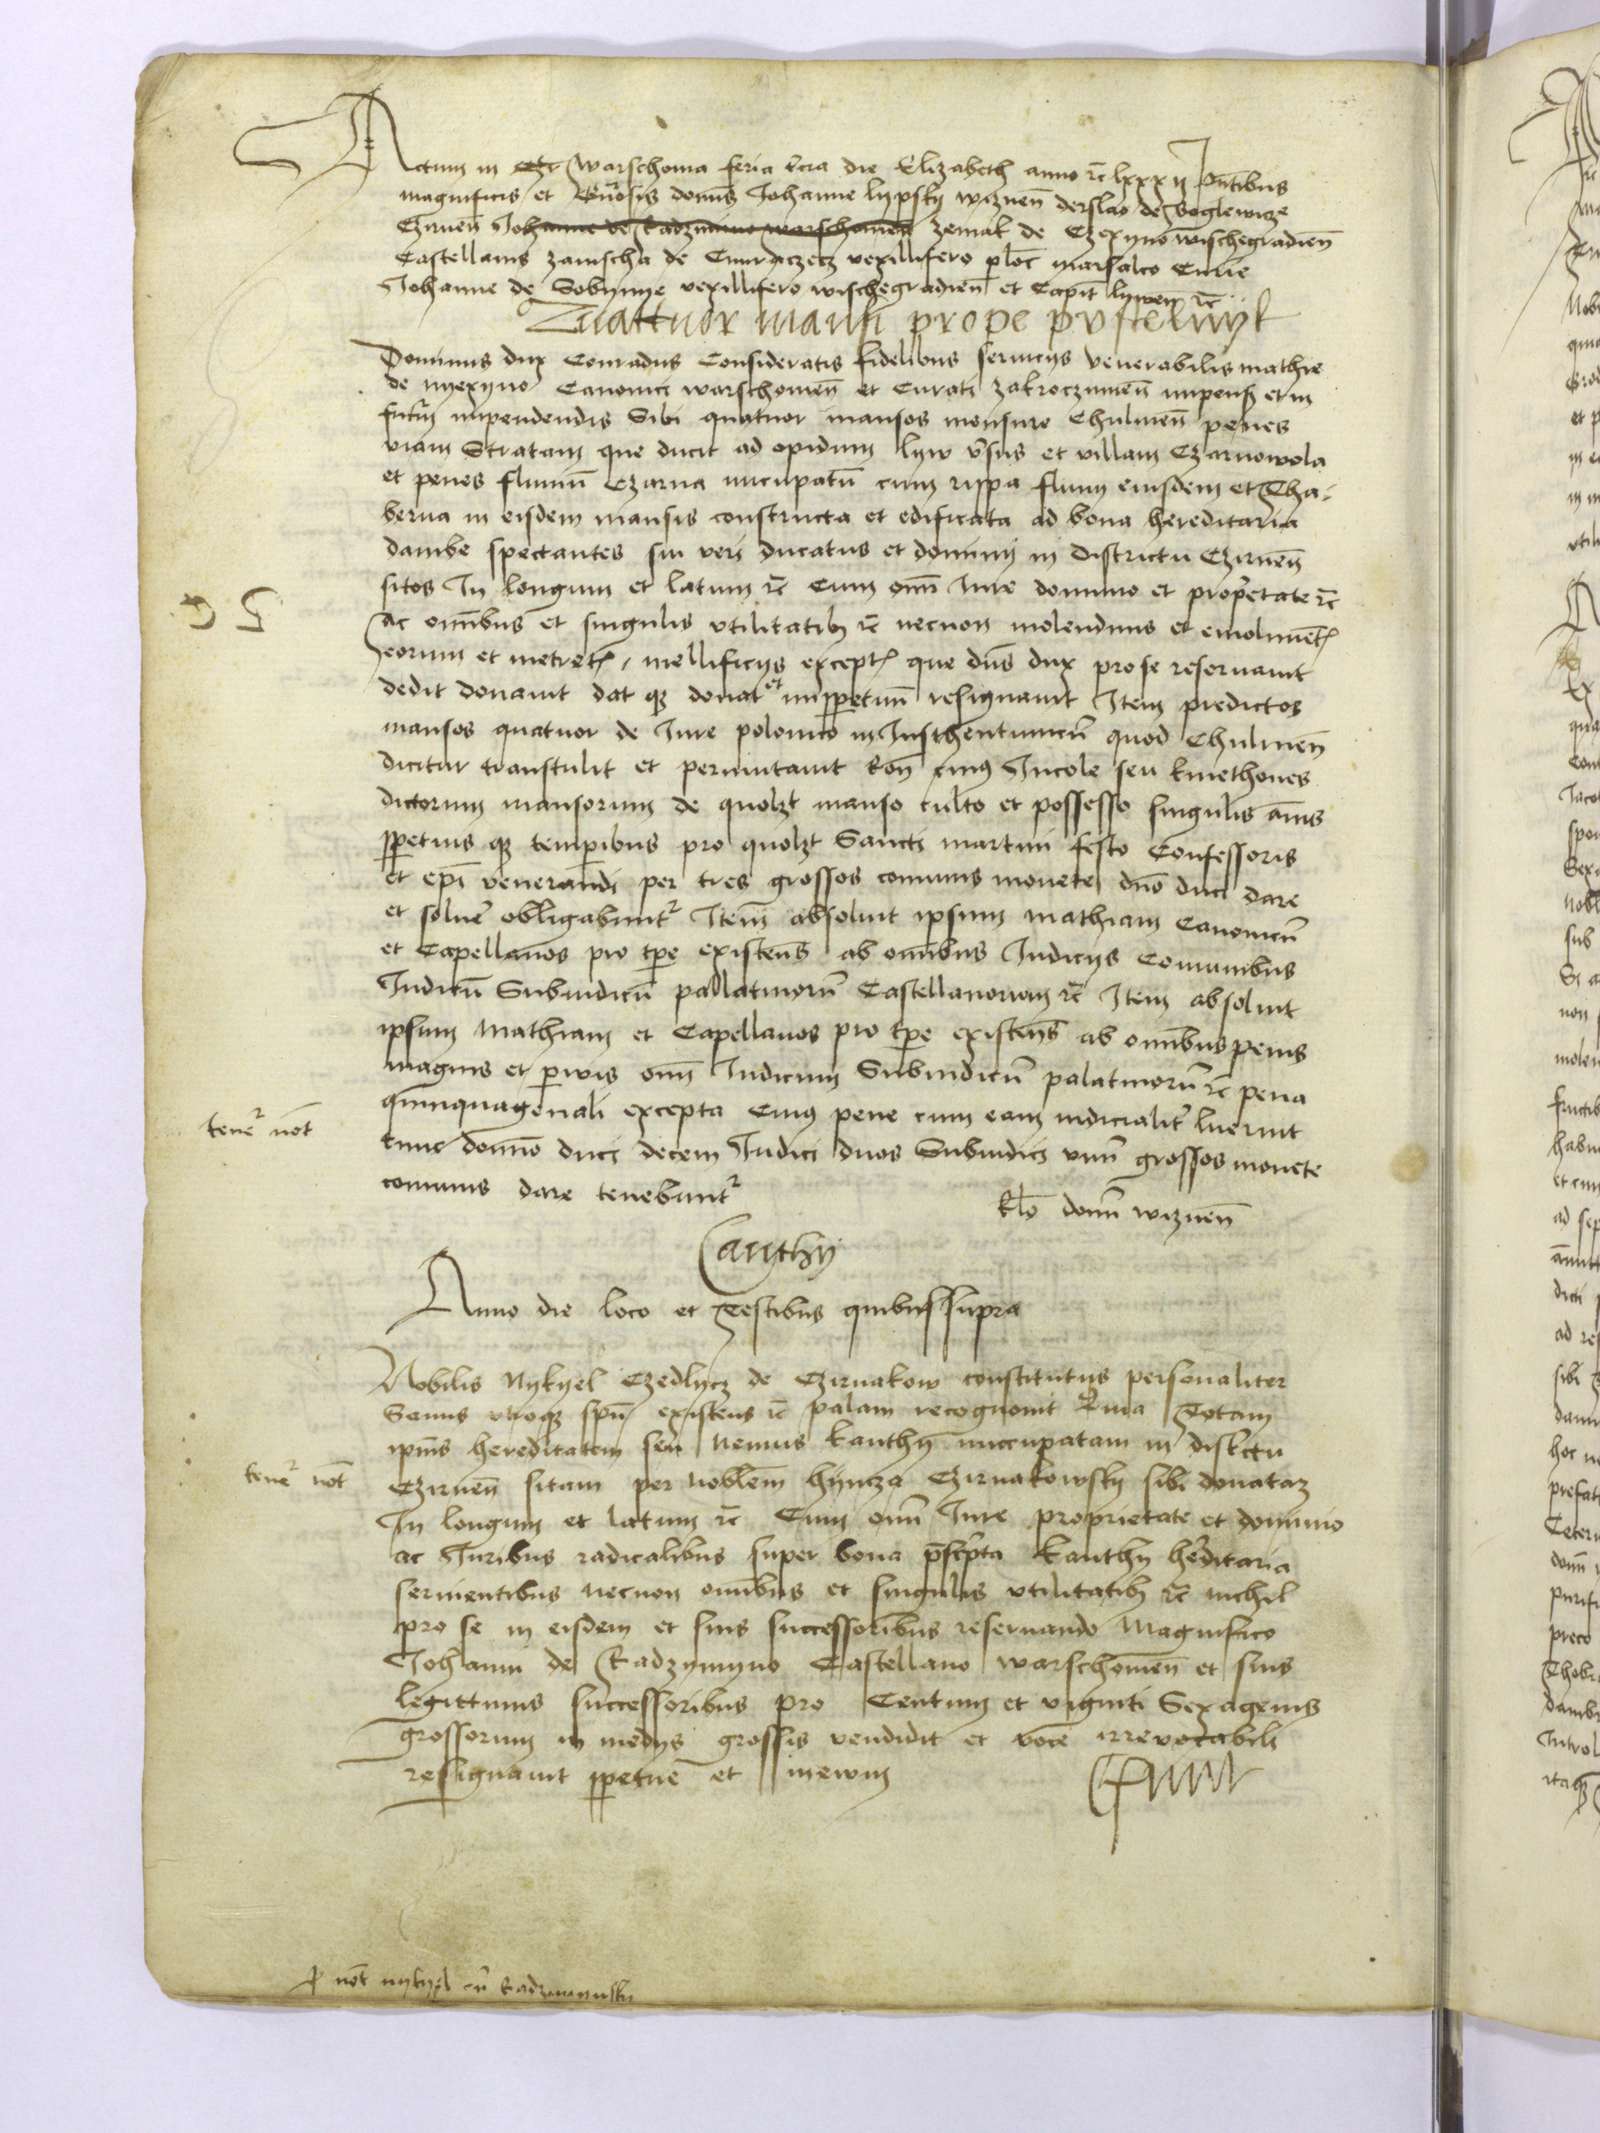 Actum in Warschouia feria tercia die Elizabeth anno rc̄ lxxxij p̄ntibus
magnificis et gn̄osis domīs Johanne lypsky wiznen̄ derslao de Boglewicze
Czirnen̄ Johanne de Radzimino warschouien̄ zemak de Czexyno wischegradien̄
Castellanis zamscha de vexillifero ploc̄ marsalco Curie
Johanne de Sobynye vexillifero wischegradien̄ et Capit̄ lywen̄ rc̄
Quattuor mansi prope pustelnyk
Dominus dux Conradus Consideratis fidelibus seruicijs venerabilis mathie
de nyexyno Canonici warschouien̄ et Curati zakroczimien̄ impensis et in
futur̄ impendendis Sibi quatuor mansos mensure Chulmen̄ penes
viam Stratam que ducit ad opidum lyw v̄sus et villam Czarnowola
et penes fluuiū Czarna nūcupatū cum rippa fluuij eiusdem et Tha-
berna in eisdem mansis constructa et edificata ad bona hereditaria
dambe spectantes sui veri ducatus et dominij in districtu Czirnen̄
sitos In longum et latum rc̄ Cum om̄i Iure dominio et prop̄etate rc̄
ac om̄ibus et singulis vtilitatib; rc̄ necnon molendinis et emolimēt;
eorum et metret; mellificijs except; que dn̄s dux pro se reseruauit
dedit donauit dat q; donat et imppetuū resignauit Item predictos
mansos quatuor de Iure polonico in Iusthentunicū quod Chulmen̄
dicitur transtulit et permutauit Rōn cuius Incole seu kmethones
dictorum mansorum de quolz̄t manso culto et possesso singulis ānis
ppetuis q; temp̄ibus pro quolz̄t Sancti martini festo Confessoris
et ep̄i venerandi per tres grossos comunis monete dn̄o duci dare
et soluē obligabunt² Item absoluit ipsum mathiam Canonicū
et Capellanos pro tp̄e existen̄s ab om̄ibus Iudicijs Comunibus
Iudicū Subiudicū pallatinorū Castellanorum rc̄ Item absoluit
ipsum Mathiam et Capellanos pro tp̄e existen̄s ab om̄ibus penis
magnis et p̄uis om̄i Iudicum Subiudicū palatinorū rc̄ pena
quinquagenali excepta Cuius pene cum eam iudicialit̄ luerint
tenet² not̄
tunc domīo duci decem Iudici duos Subiudici vnū grossos monete
comunis dare tenebunt²
Rl̄o dom̄i wiznen̄
Canthy
Anno die loco et Testibus quibus supra
Nobilis Nykyel Czedlycz de Czirnakow constitutus personaliter
Sanus vtroq; sp̄u existens rc̄ palam recognouit Quia Totam
ip̄ius hereditatem seu Nemus kanthy nuccupatam in districtu
tenet² not̄
Czirnen̄ sitam per nobl̄em hyncza Czirnakowsky sibi donatam
In longum et latum rc̄ Cum om̄i Iure proprietate et dominio
ac Iuribus radicalibus super bona p̄scrip̄ta kanthy h̄editaria
seruientibus necnon om̄ibus et singulis vtilitatib; rc̄ nichil
pro se in eisdem et suis successoribus reseruando Magnifico
Johanni de Radzymyno Castellano warschouien̄ et suis
legittimis successoribus pro Centum et viginti Sexagenis
grossorum in medijs grossis vendidit et voce irreuocabili
resignauit ppetue et ineuum
not̄ nykyel Radzimynsky